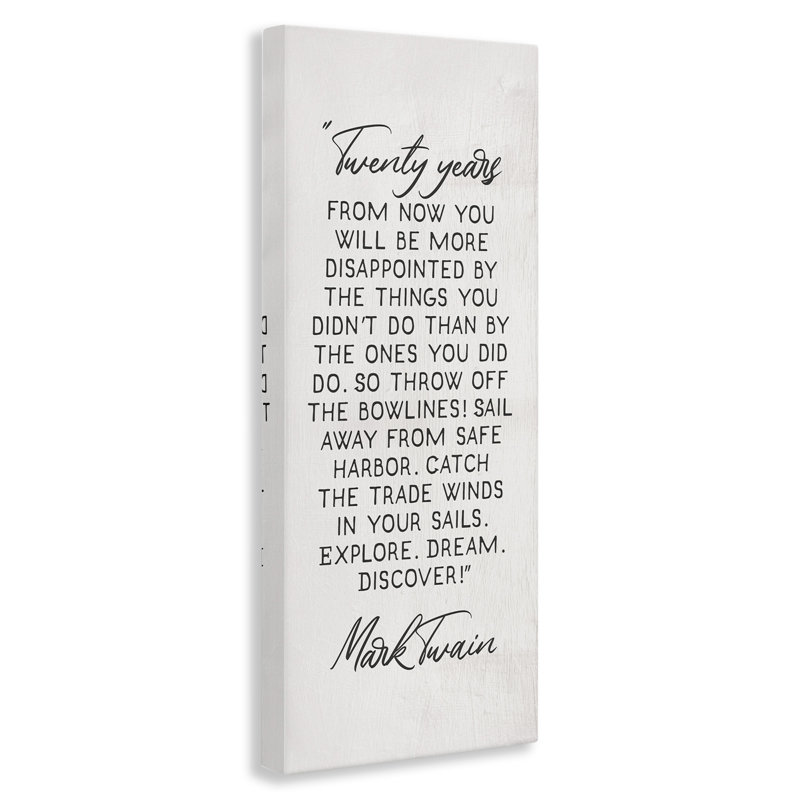 "Twenty years
FROM NOW YOU
WILL BE MORE
DISAPPOINTED BY
THE THINGS YOU
DIDN'T DO THAN BY
THE ONES YOU DID
DO. SO THROW OFF
THE BOWLINES! SAIL
AWAY FROM SAFE
HARBOR. CATCH
THE TRADE WINDS
IN YOUR SAILS.
EXPLORE. DREAM.
DISCOVER!"
Mark Twain